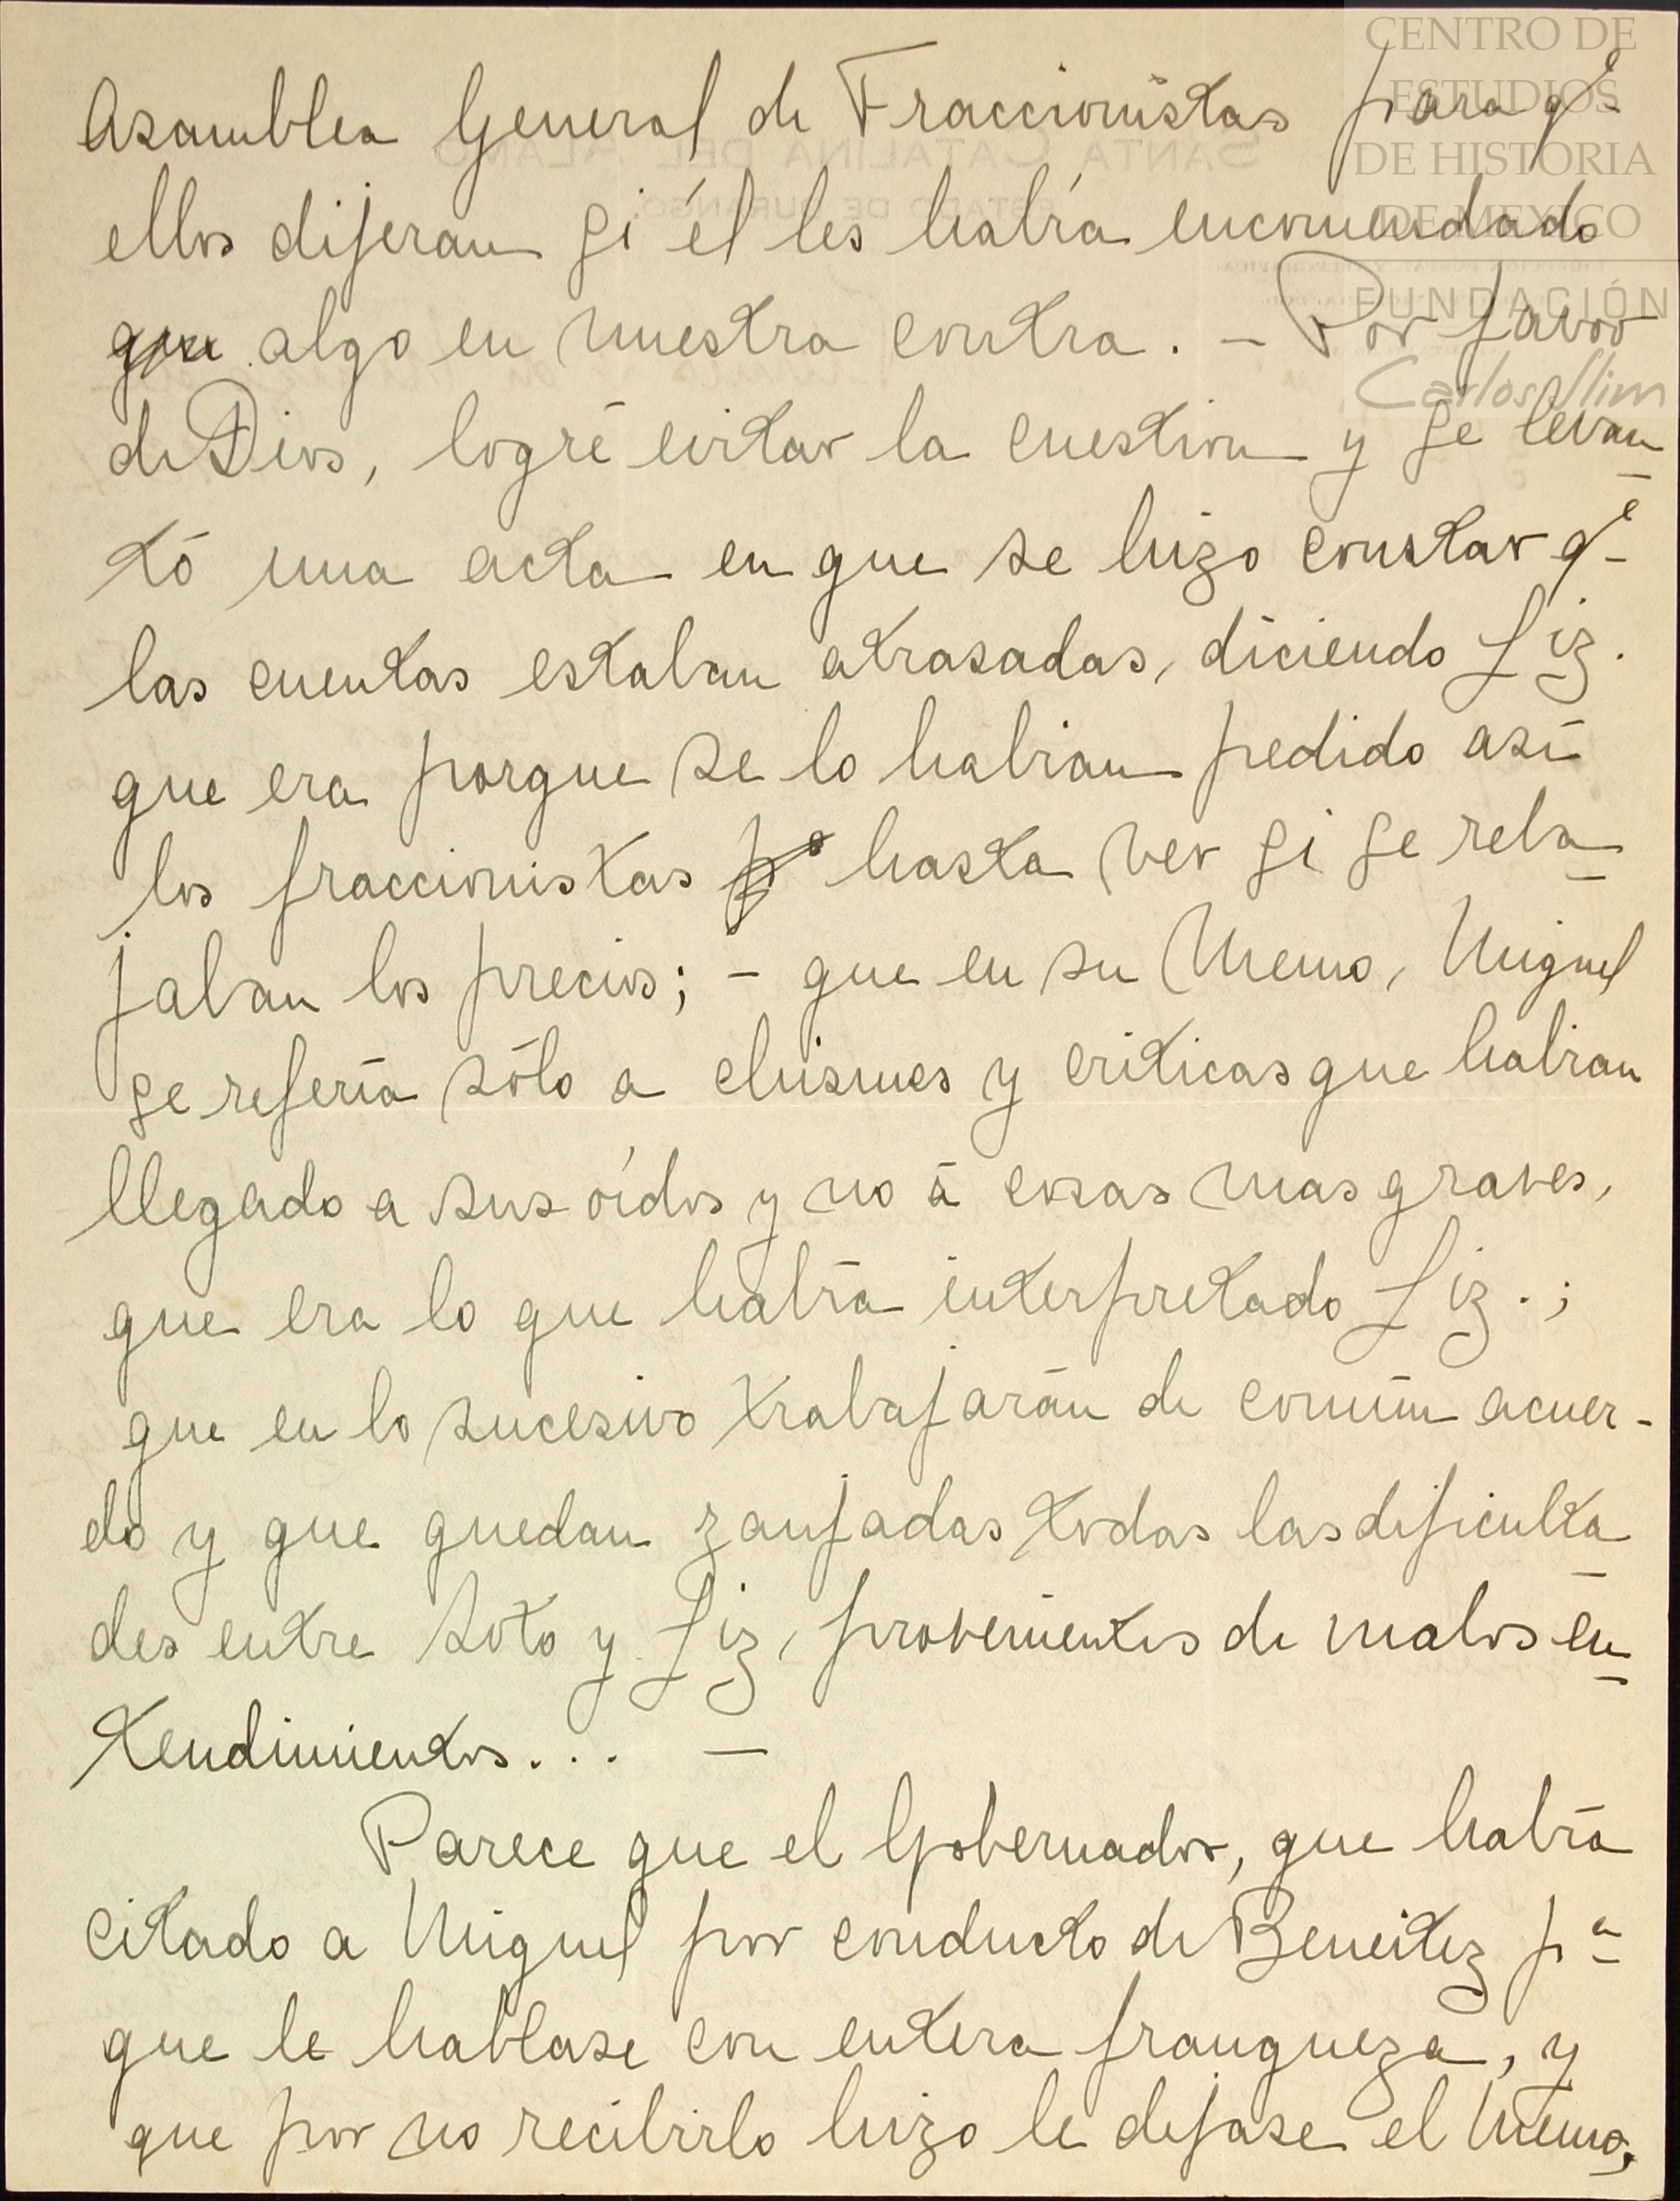 CENTRO DE
ESTUDIOS
DE HISTORIA
DE MEXICO
FUNDACIÓN
Carlos Slim
Asamblea General de Fraccionistas para qe
ellos dijeran si él les había encomendado
que algo en nuestra contra. - Por favor
de Dios, logré evitar la cuestion y se levan
tó una acta en que se hizo constar qe
las cuentas estaban atrasadas, diciendo Liz.
que era porque se lo habian pedido así
los fraccionistas hasta ver si se reba
jaban los precios; - que en su Memo, Miguel
se refería sólo a chismes y criticas que habian
llegado a sus oídos y no á cosas mas graves,
que era lo que había interpretado Liz.;
que en lo sucesivo trabajarán de común acuer-
do y que quedan zanjadas todas las dificulta
des entre Soto y Liz, provenientes de malos en
tendimientos... —
Parece que el Gobernador, que había
citado a Miguel por conducto de Beneitez pa
que le hablase con entera franqueza, y
que por no recibirlo hizo le dejase el Memo,